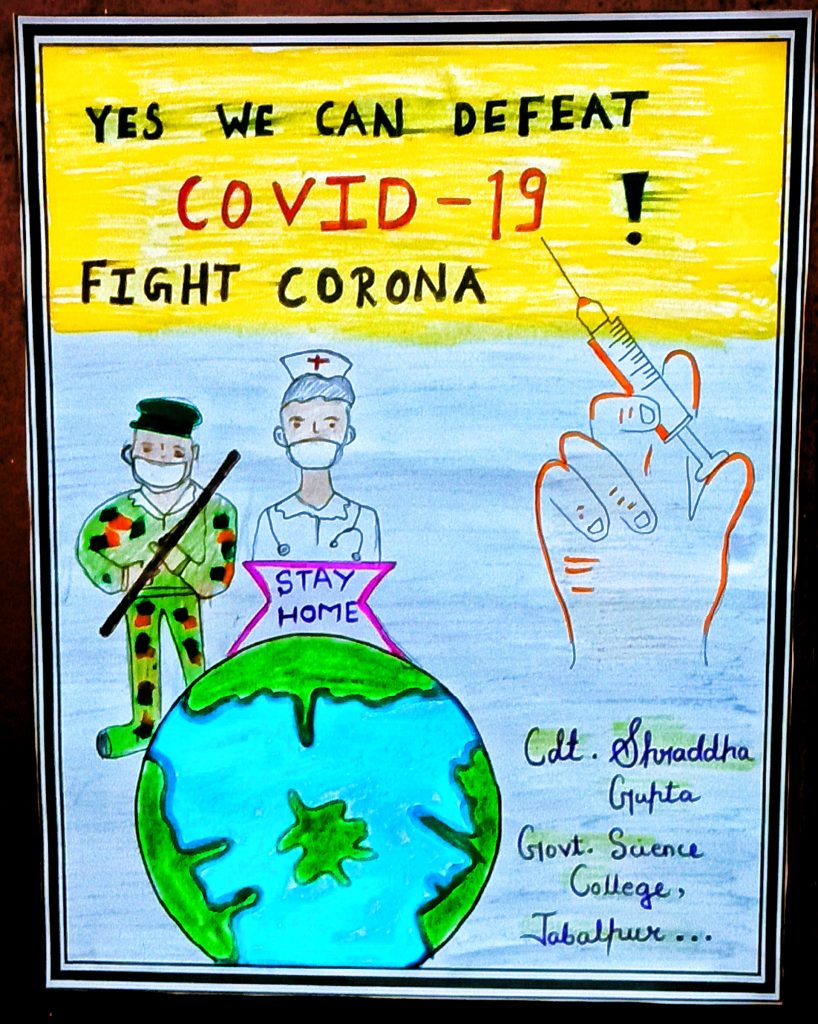 YES WE CAN DEFEAT
COVID-19 !
FIGHT CORONA
STAY
HOME
Cdt. Shraddha
Gupta
Govt. Science
College,
Jabalpur...